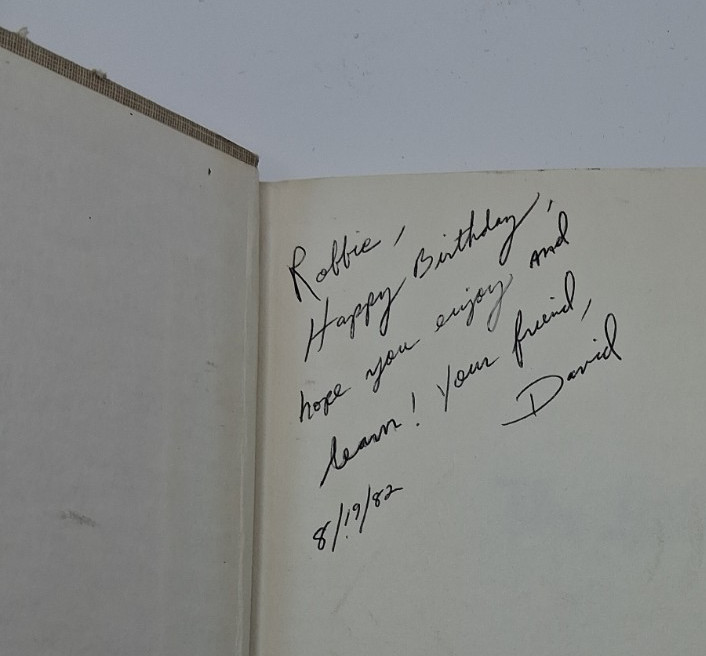 Robbie,
Happy Birthday,
hope you enjoy and
learn! Your friend,
David
8/19/82